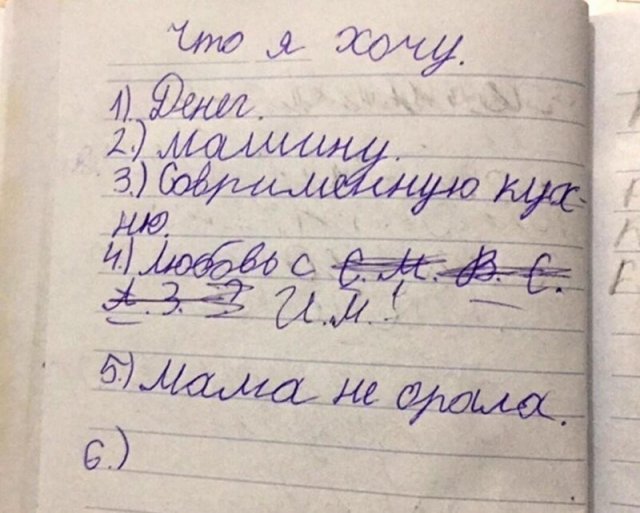 Что я хочу.
1). Денег.
2.) Машину.
3.) Соврименную кух-
ню.
4.) Любовь с С. М. В. С.
А. З. Э И.М.!
5.) Мама не орала.
6.)